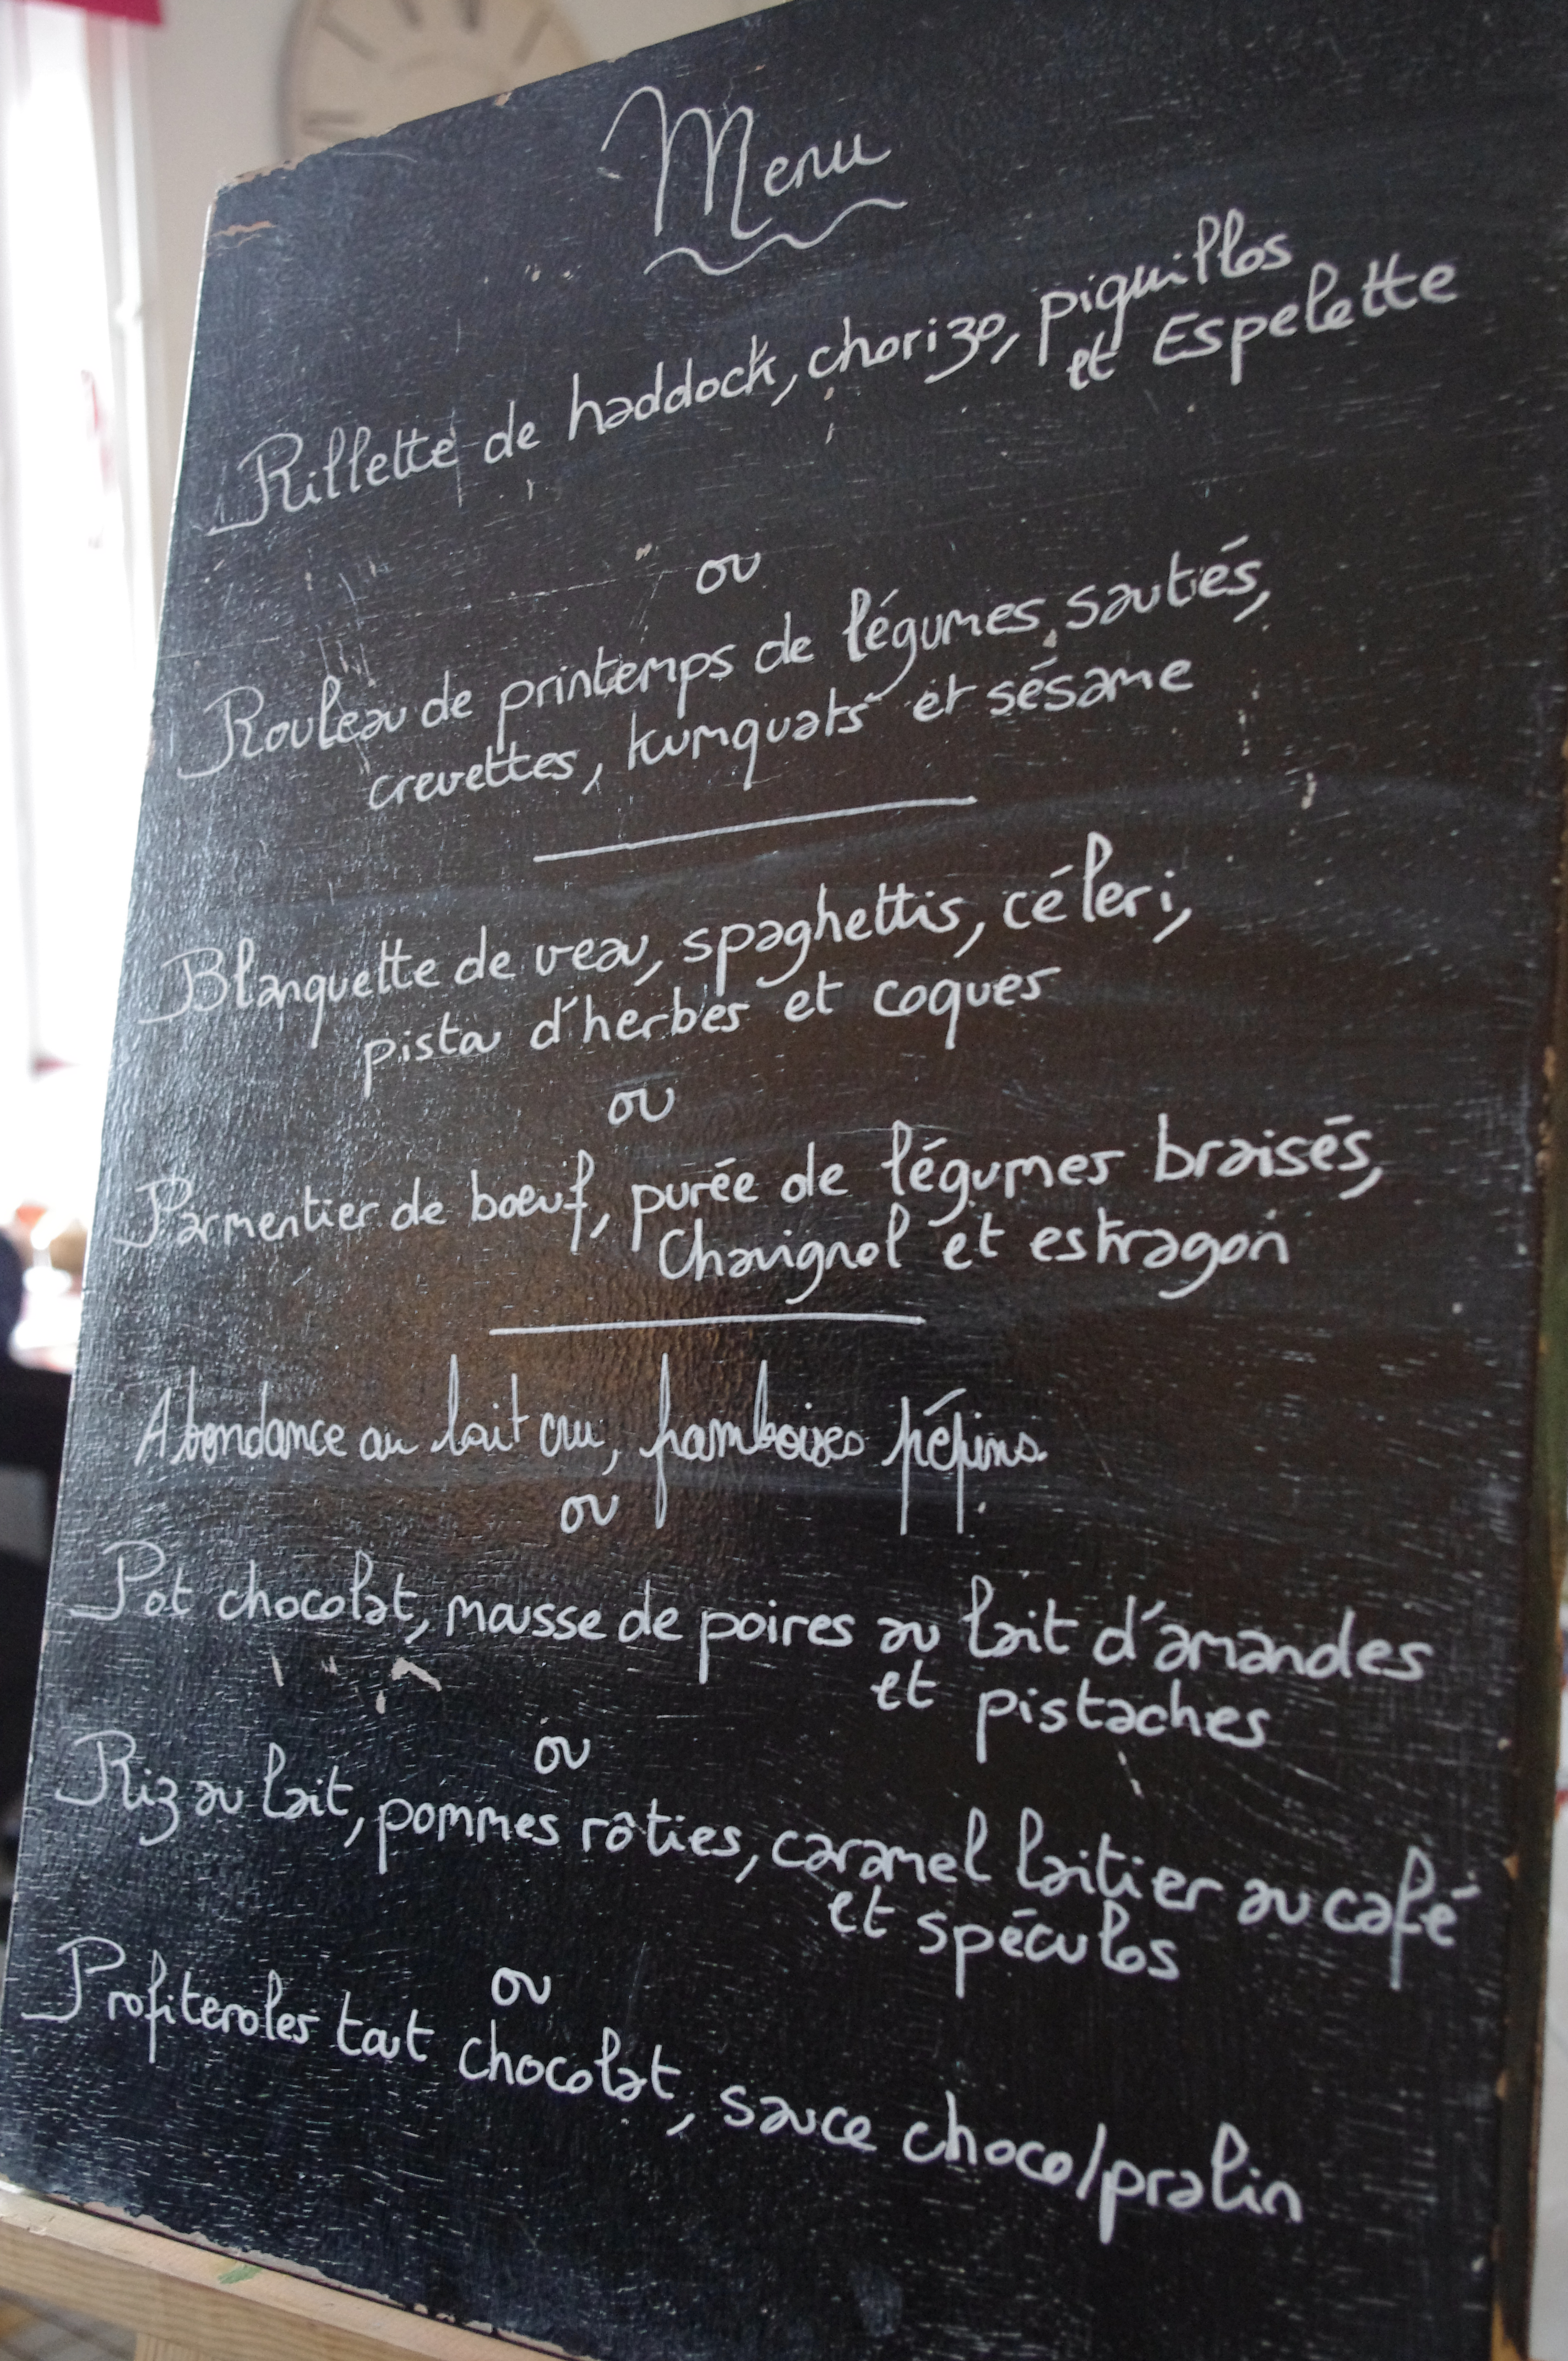 Menu
Rillette de haddock, chorizo, piquillos
et Espelette
ou
Rouleau de printemps de légumes sautés,
crevettes, kumquats et sésame
Blanquette de veau, spaghettis, céleri,
pistou d'herbes et coques
ou
Parmentier de boeuf, purée de légumes braisés,
Chavignol et estragon
Abondance au lait cru, framboises pépins.
ou
Pot chocolat, mousse de poires au lait d'amandes
et pistaches
ou
Riz au lait, pommes rôties, caramel laitier au café
et spéculos
ou
Profiteroles tout chocolat, sauce choco/pralin